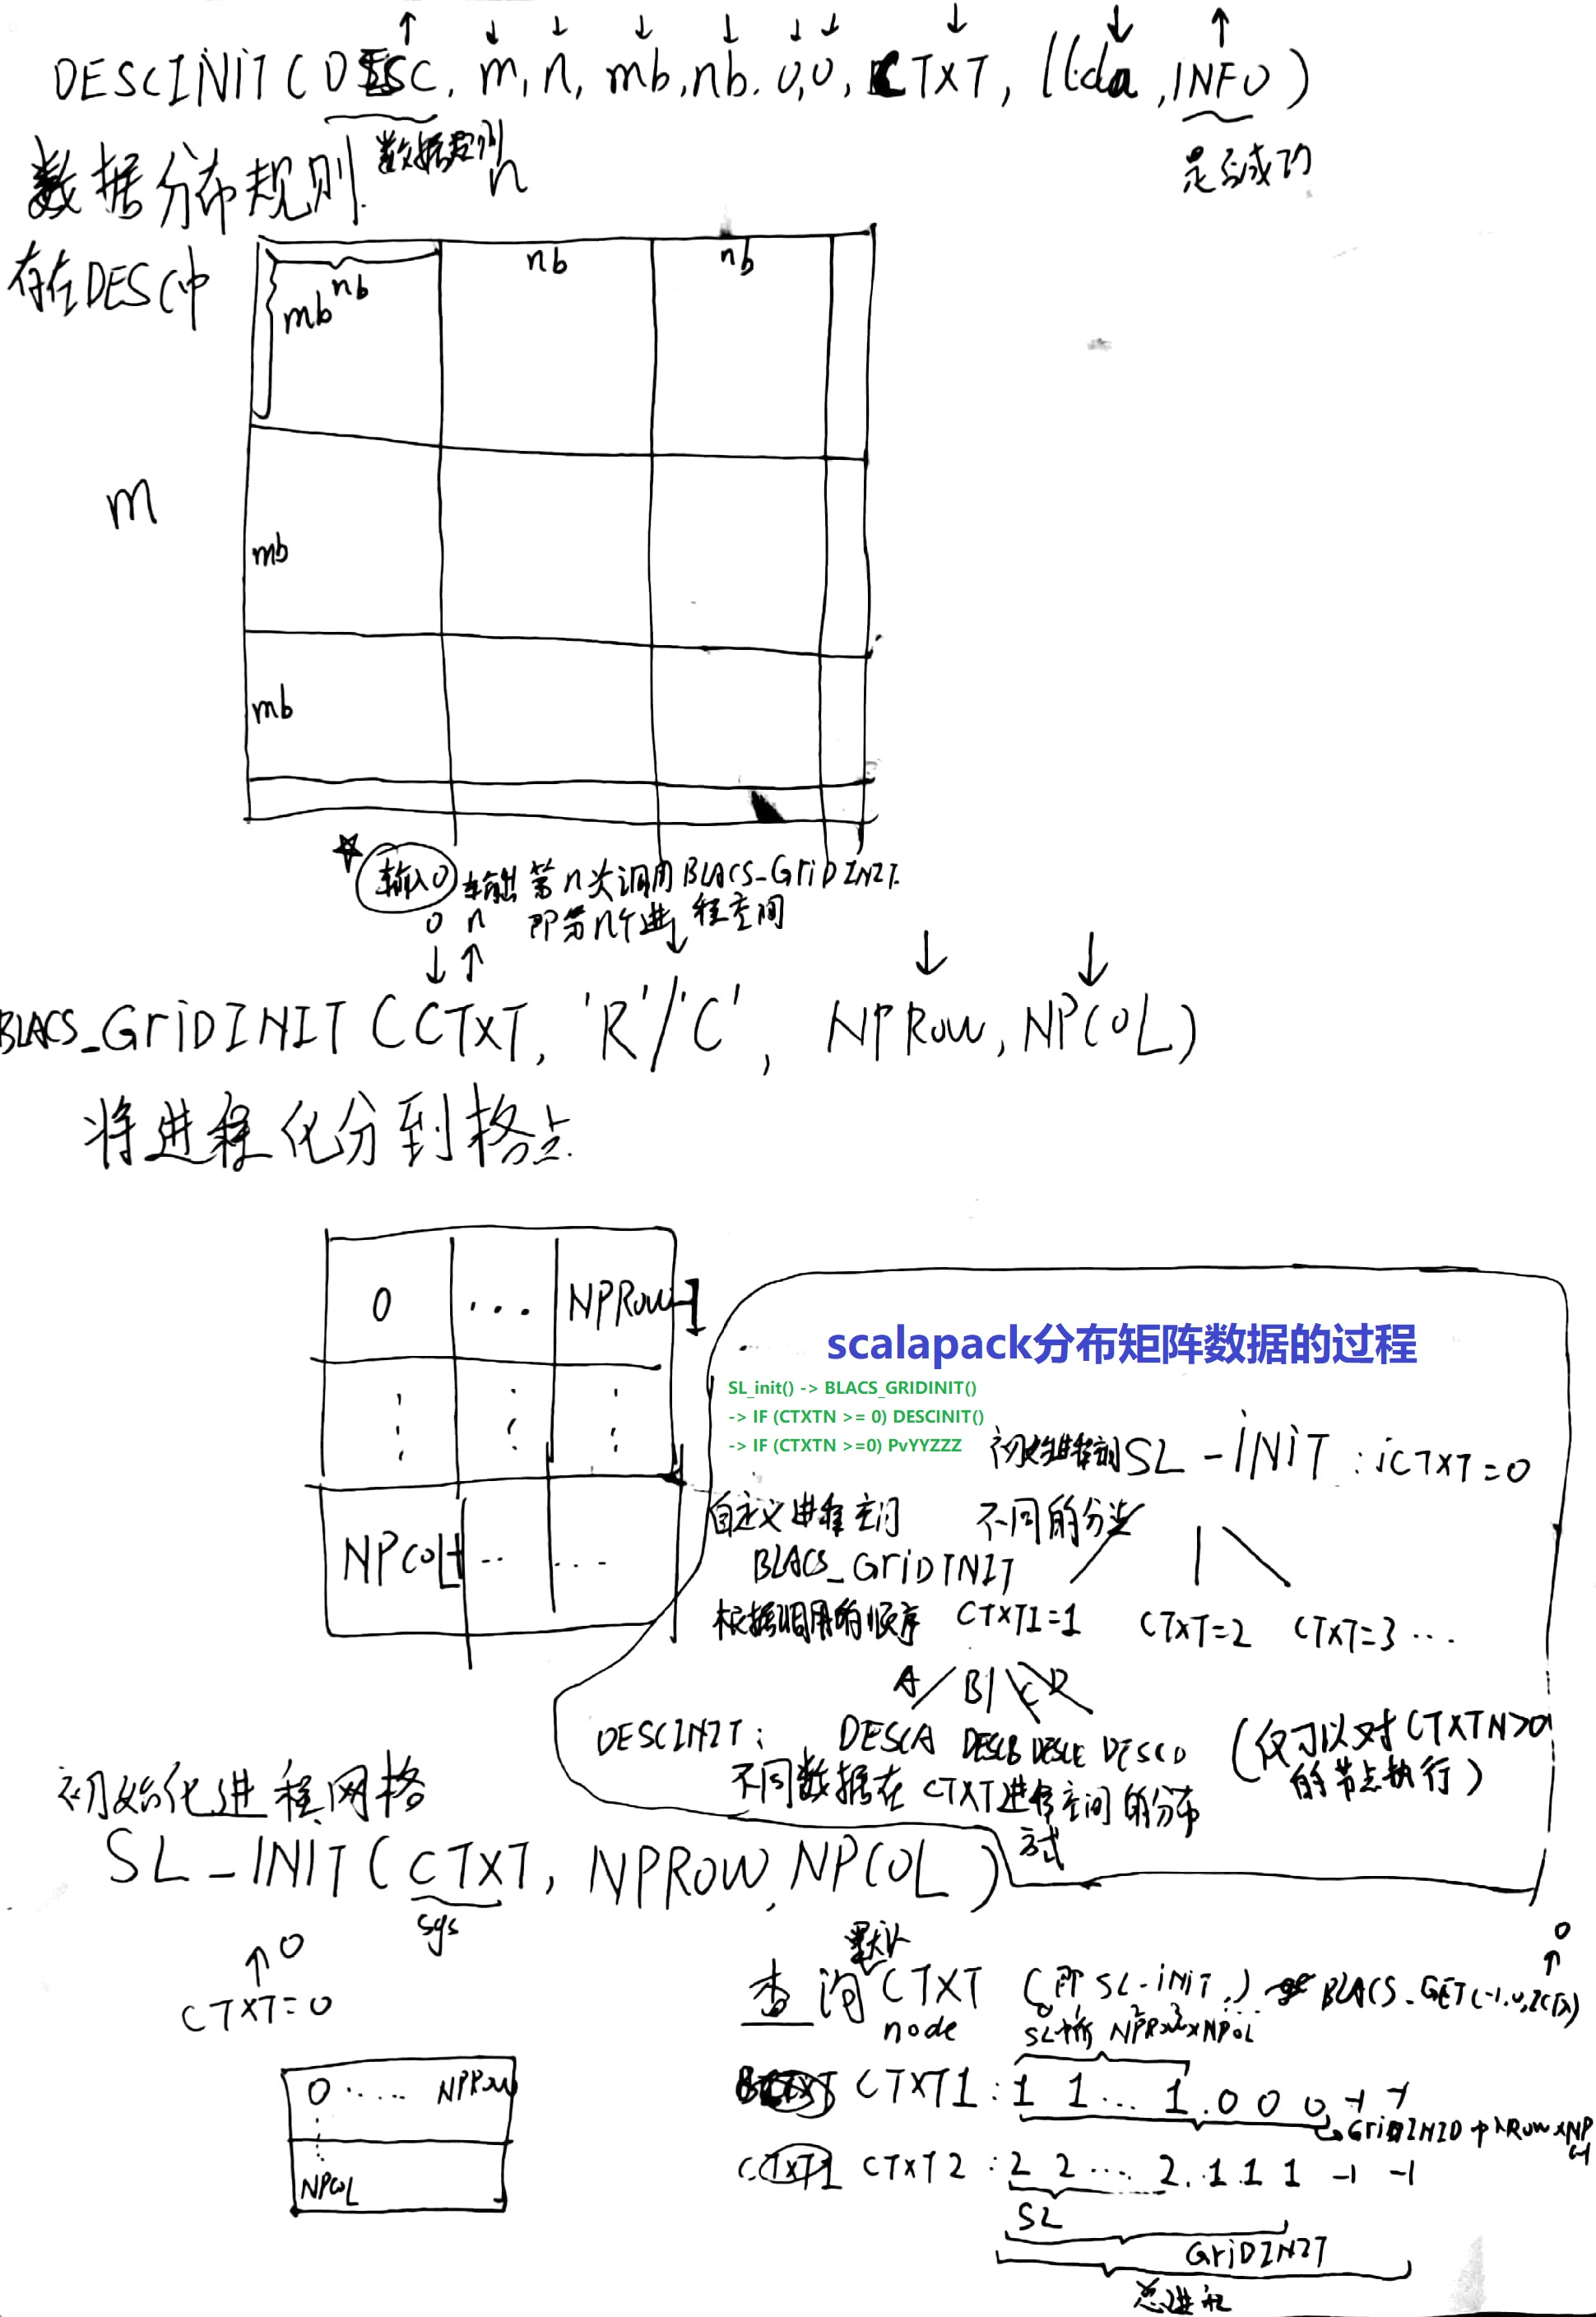 DESCINIT(DESC, m, n, mb, nb, 0, 0, CTXT, llda, INFO)
数据规则
是否成功
数据分布规则
存在DESC中
n
nb
nb
nb
mb
m
mb
mb
输入0 输出 第n次调用BLACS_GriDINIT
0 n 即第n个进程空间
BLACS_GriDINIT(CTXT, 'R'/'C', NPRow, NPCOL)
将进程化分到格点
0 ... NPRow-1
NPCOL-1 .. ...
scalapack分布矩阵数据的过程
SL_init() -> BLACS_GRIDINIT()
-> IF (CTXTN >= 0) DESCINIT()
-> IF (CTXTN >=0) PvYYZZZ
SL-INIT : iCTXT=0
自定义进程空间 不同的分法
BLACS_GriDINIT
根据调用的顺序 CTXT1=1 CTXT=2 CTXT=3 ...
A B C D
DESCINIT: DESCA DESCB DESCC DESCD
(仅可以对CTXTN>0的节点执行)
不同数据在CTXT进程空间的分布
方式
初始化进程网格
SL-INIT(CTXT, NPROW, NPCOL)
sys
0
CTXT=0
0 ..... NPRow
NPCOL
默认
查询CTXT (即SL-INIT) BLACS_GET(-1,0,ICTX)
0
node
CTXT1: 1 1 ... 1 . 0 0 0 -1 -1
CTXT2: 2 2 ... 2 . 1 1 1 -1 -1
SL
GriDINIT
总进程